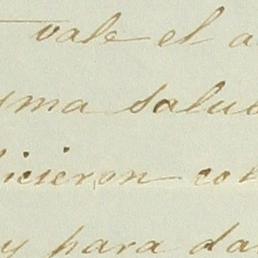 vale el a
ma salud
icieron con
y para da